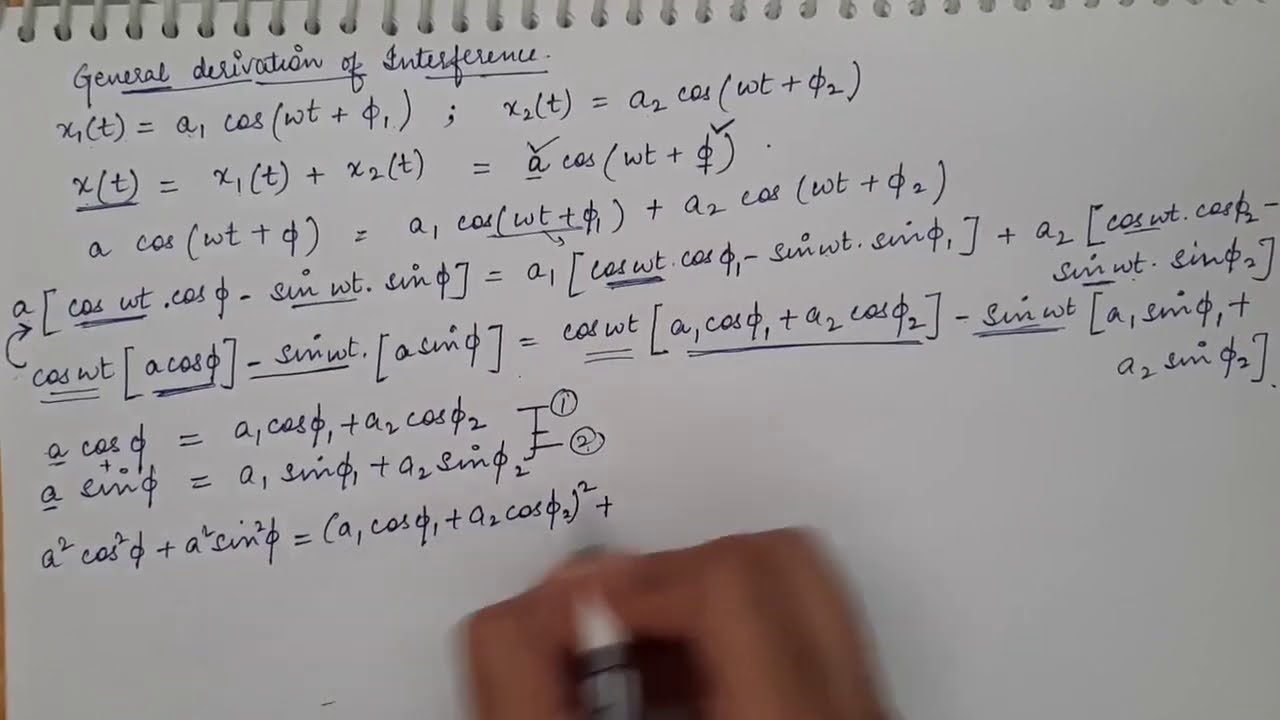 General derivation of Interference.
x₁(t) = a₁ cos(wt + ϕ₁) ; x₂(t) = a₂ cos(wt + ϕ₂)
x(t) = x₁(t) + x₂(t) = a cos(wt + ϕ) .
a cos(wt + ϕ) = a₁ cos(wt + ϕ₁) + a₂ cos (wt + ϕ₂)
a [cos wt . cosϕ - sin wt . sinϕ] = a₁ [cos wt . cosϕ₁ - sin wt . sinϕ₁] + a₂ [cos wt . cosϕ₂ -
sin wt . sinϕ₂]
cos wt [a cosϕ] - sin wt . [a sinϕ] = cos wt [a₁ cosϕ₁ + a₂ cosϕ₂] - sin wt [a₁ sinϕ₁ +
a₂ sinϕ₂].
a cosϕ = a₁ cosϕ₁ + a₂ cosϕ₂ ①
+
a sinϕ = a₁ sinϕ₁ + a₂ sinϕ₂ ②
a² cos²ϕ + a² sin²ϕ = (a₁ cosϕ₁ + a₂ cosϕ₂)² +